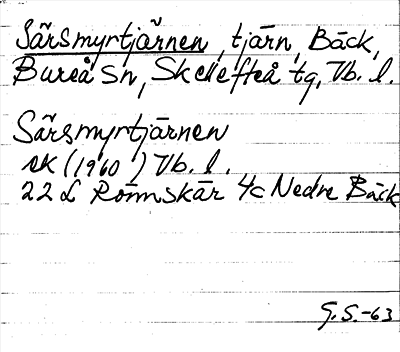 Särsmyrtjärnen, tjärn, Bäck,
Bureå Sn, Skellefteå tg, Vb. l.
Särsmyrtjärnen
ek (1960) Vb. l.
22 L Rönnskär 4c Nedre Bäck
G.S.-63